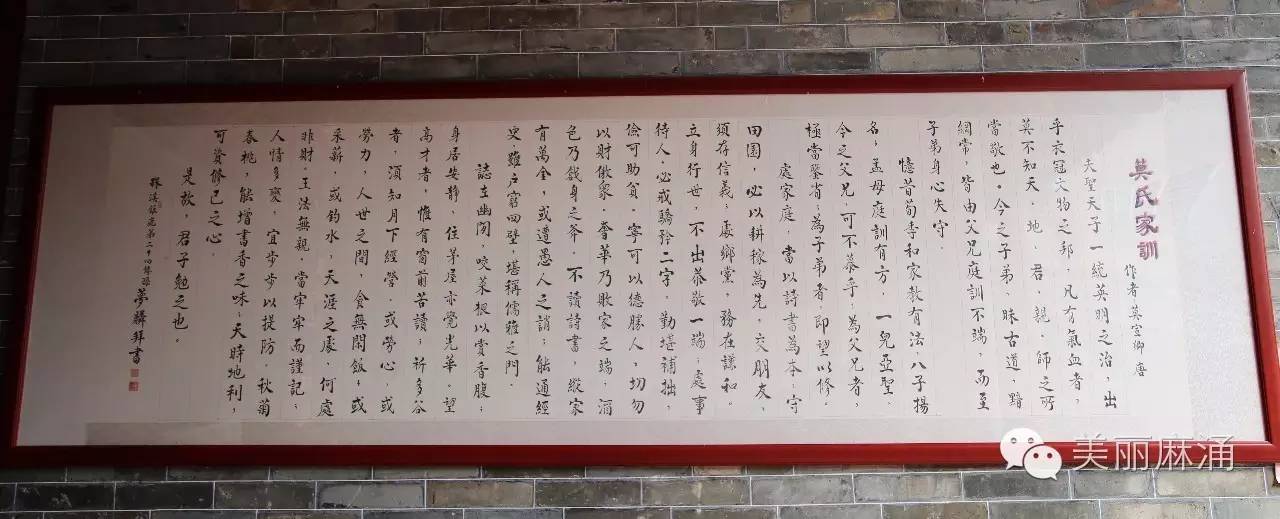 莫氏家訓
作者莫宣卿 唐
夫聖天子一統英明之治，出
乎衣冠文物之邦，凡有氣血者，
莫不知天、地、君、親、師之所
當敬也。今之子弟，昧古道，黯
綱常，皆由父兄庭訓不端，而至
子弟身心失守。
憶昔荀季和家教有法，八子揚
名，孟母庭訓有方，一兒亞聖。
今之父兄，可不慕乎，為父兄者，
極當鑒省；為子弟者，即望以修。
處家庭，當以詩書為本；守
田園，必以耕稼為先。交朋友，
須存信義；處鄉黨，務在謙和。
立身行世，不出恭敬一端；處事
待人，必戒驕矜二字。勤堪補拙，
儉可助貧。寧可以德勝人，切勿
以財傲眾。奢華乃敗家之端，酒
色乃伐身之斧。不讀詩書，縱家
有萬金，或遭愚人之誚；能通經
史，雖戶富四壁，堪稱儒雅之門。
誌在幽閑，咬菜根以賞香腹；
身居安靜，住茅屋亦覺光華。望
高才者，惟有窗前苦讀；祈多谷
者，須知月下經營。或勞心，或
勞力，人世之間，食無閑飯，或
采薪，或釣水，天涯之處，何處
非財。王法無親，當牢牢而謹記；
人情多變，宜步步以提防。秋菊
春桃，能增書香之味；天時地利，
可資修己之心。
是故，君子勉之也。
夢麟拜書
美丽麻涌